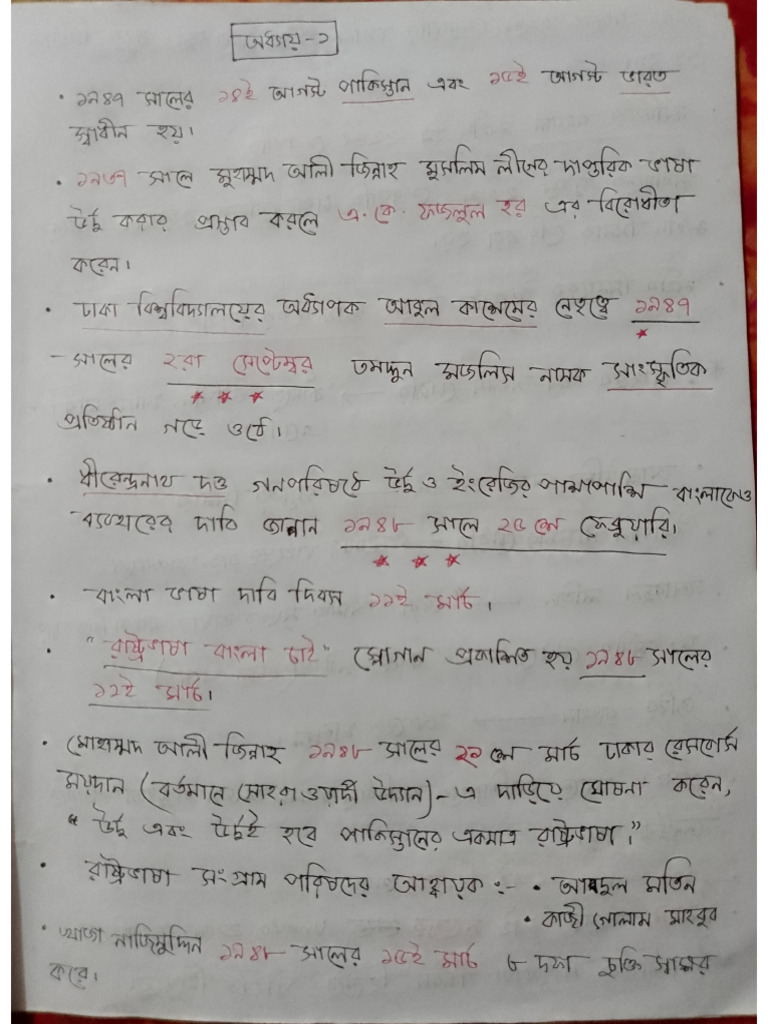 অধ্যায় - ১
• ১৯৪৭ সালের ১৪ই আগস্ট পাকিস্তান এবং ১৫ই আগস্ট ভারত
স্বাধীন হয়।
• ১৯৩৭ সালে মুহাম্মদ আলী জিন্নাহ মুসলিম লীগের দাপ্তরিক ভাষা
উর্দু করার প্রস্তাব করলে এ. কে. ফজলুল হক এর বিরোধীতা
করেন।
• ঢাকা বিশ্ববিদ্যালয়ের অধ্যাপক আবুল কাশেমের নেতৃত্বে ১৯৪৭
- সালের ২রা সেপ্টেম্বর তমদ্দুন মজলিস নামক সাংস্কৃতিক
প্রতিষ্ঠান গড়ে ওঠে।
• ধীরেন্দ্রনাথ দত্ত গনপরিষদে উর্দু ও ইংরেজির পাশাপাশি বাংলাকেও
ব্যবহারের দাবি জানান ১৯৪৮ সালে ২৫ শে ফেব্রুয়ারি।
• বাংলা ভাষা দাবি দিবস ১১ই মার্চ।
• "রাষ্ট্রভাষা বাংলা চাই" স্লোগান প্রকাশিত হয় ১৯৪৮ সালের
১১ই মার্চ।
• মোহাম্মদ আলী জিন্নাহ ১৯৪৮ সালের ২১ শে মার্চ ঢাকার রেসকোর্স
ময়দান (বর্তমানে সোহরাওয়ার্দী উদ্যান)- এ দাড়িয়ে ঘোষনা করেন,
"উর্দু এবং উর্দুই হবে পাকিস্তানের একমাত্র রাষ্ট্রভাষা।"
• রাষ্ট্রভাষা সংগ্রাম পরিষদের আহ্বায়ক :- • আবদুল মতিন
• কাজী গোলাম মাহবুব
• খাজা নাজিমুদ্দিন ১৯৪৮ সালের ১৫ই মার্চ ৮ দফা চুক্তি স্বাক্ষর
করে।